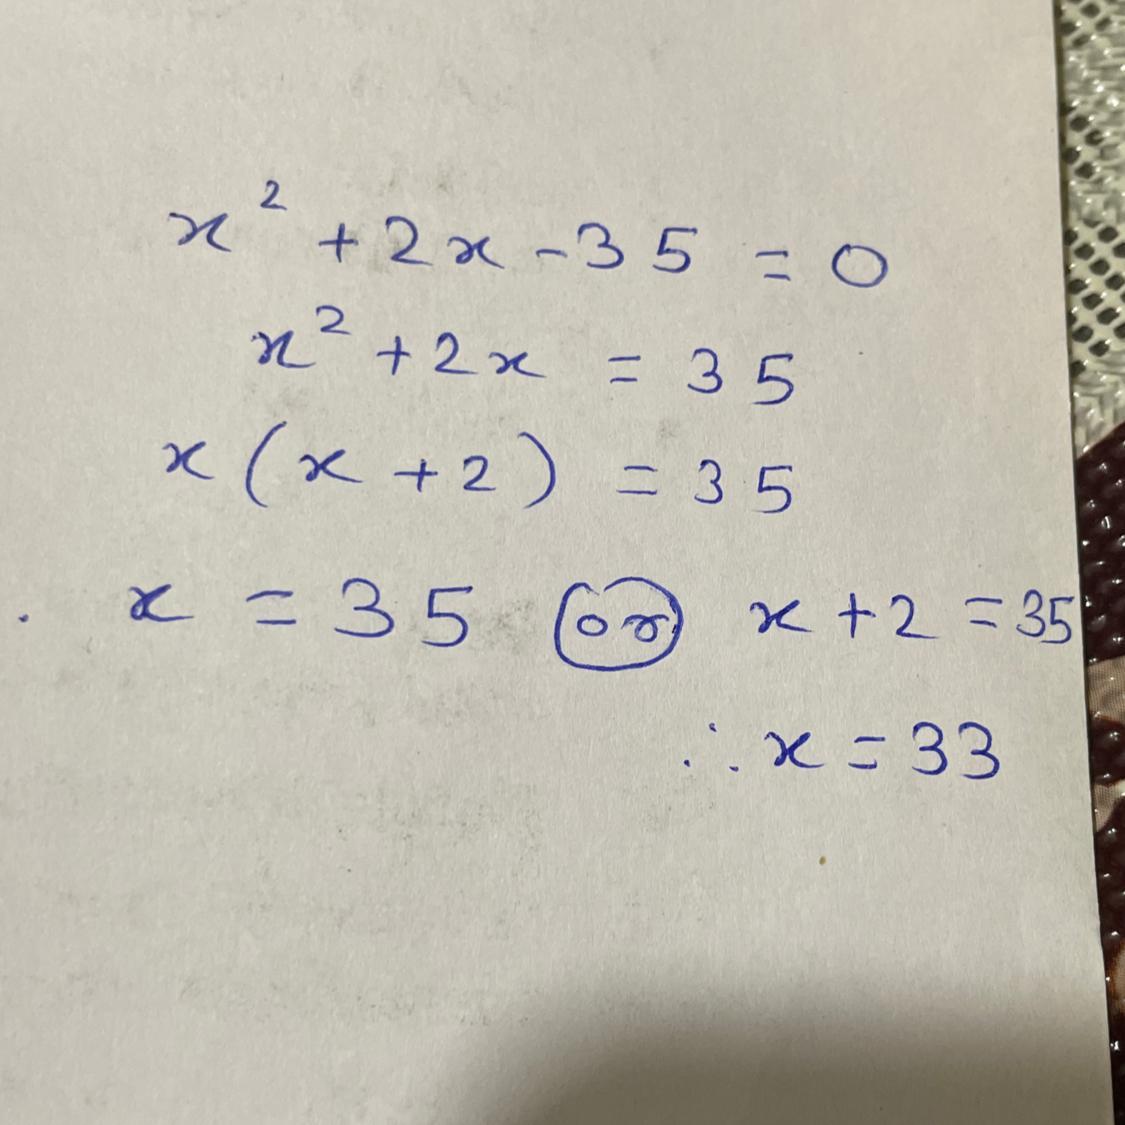 x² + 2x - 35 = 0
x² + 2x = 35
x (x + 2) = 35
. x = 35 or x + 2 = 35
∴ x = 33